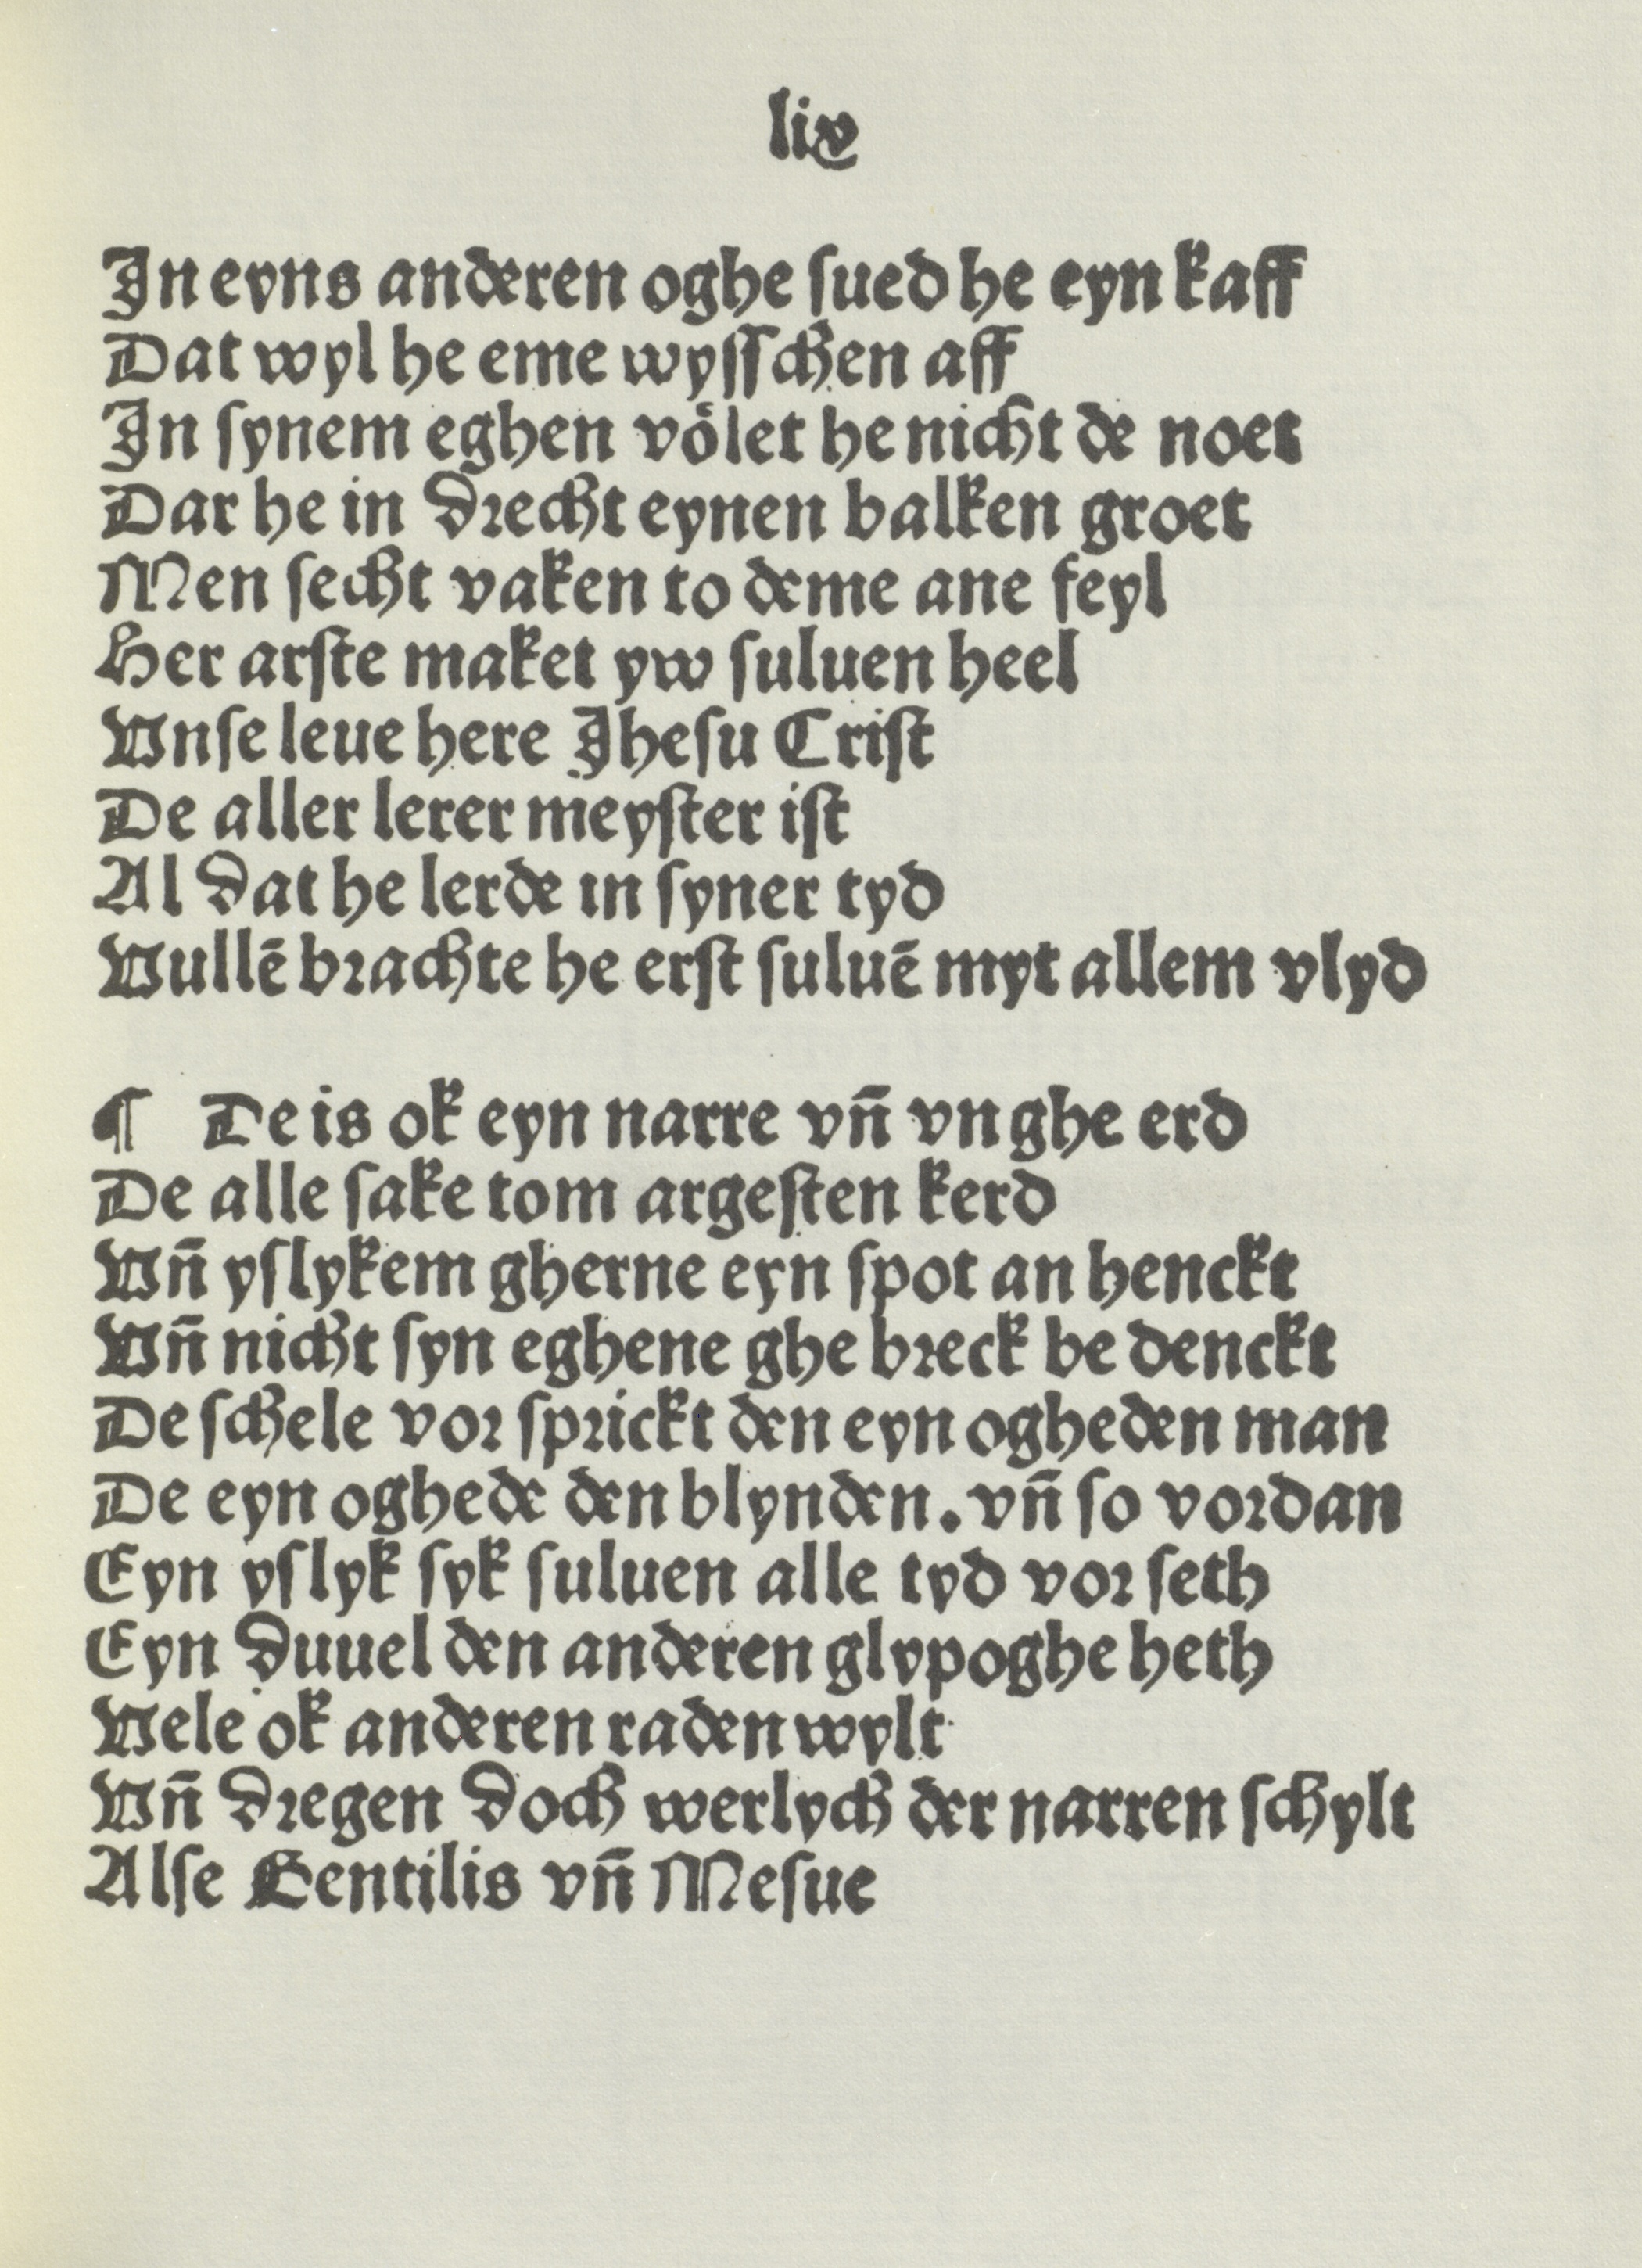 lix
In eyns anderen oghe ſued he eyn kaff
Dat wyl he eme wyſſchen aff
In ſynem eghen voͤlet he nicht de noet
Dar he in drecht eynen balken groet
Men ſecht vaken to deme ane feyl
Her arſte maket yw ſuluen heel
Vnſe leue here Jheſu Criſt
De aller lerer meyſter iſt
Al dat he lerde in ſyner tyd
Vullē brachte he erſt ſuluē myt allem vlyd
¶ De is ok eyn narre vn̄ vnghe erd
De alle ſake tom argeſten kerd
Vn̄ yſlykem gherne eyn ſpot an henckt
Vn̄ nicht ſyn eghene ghe breck be denckt
De ſchele vor ſprickt den eyn ogheden man
De eyn oghede den blynden. vn̄ ſo vordan
Eyn yſlyk ſyk ſuluen alle tyd vor ſeth
Eyn duuel den anderen glypoghe heth
Vele ok anderen raden wylt
Vn̄ dregen doch werlych der narren ſchylt
Alſe Gentilis vn̄ Meſue